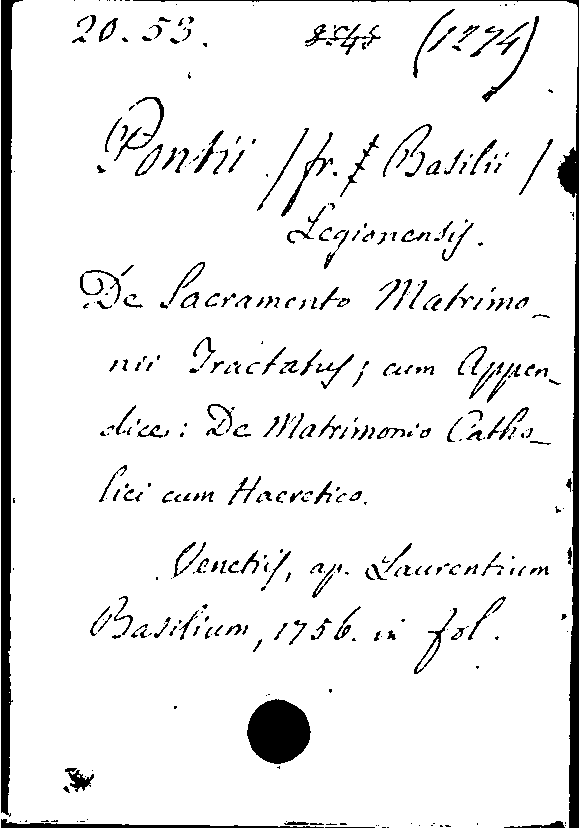 20.53. (1274)
Pontii /fr. Basilii /
Legionensis.
De Sacramento Matrimo_
nii Tractatus; cum Appen_
dice: De Matrimonio Catho_
lici cum Haeretico.
Venetiis, ap. Laurentium
Basilium, 1756. in fol.